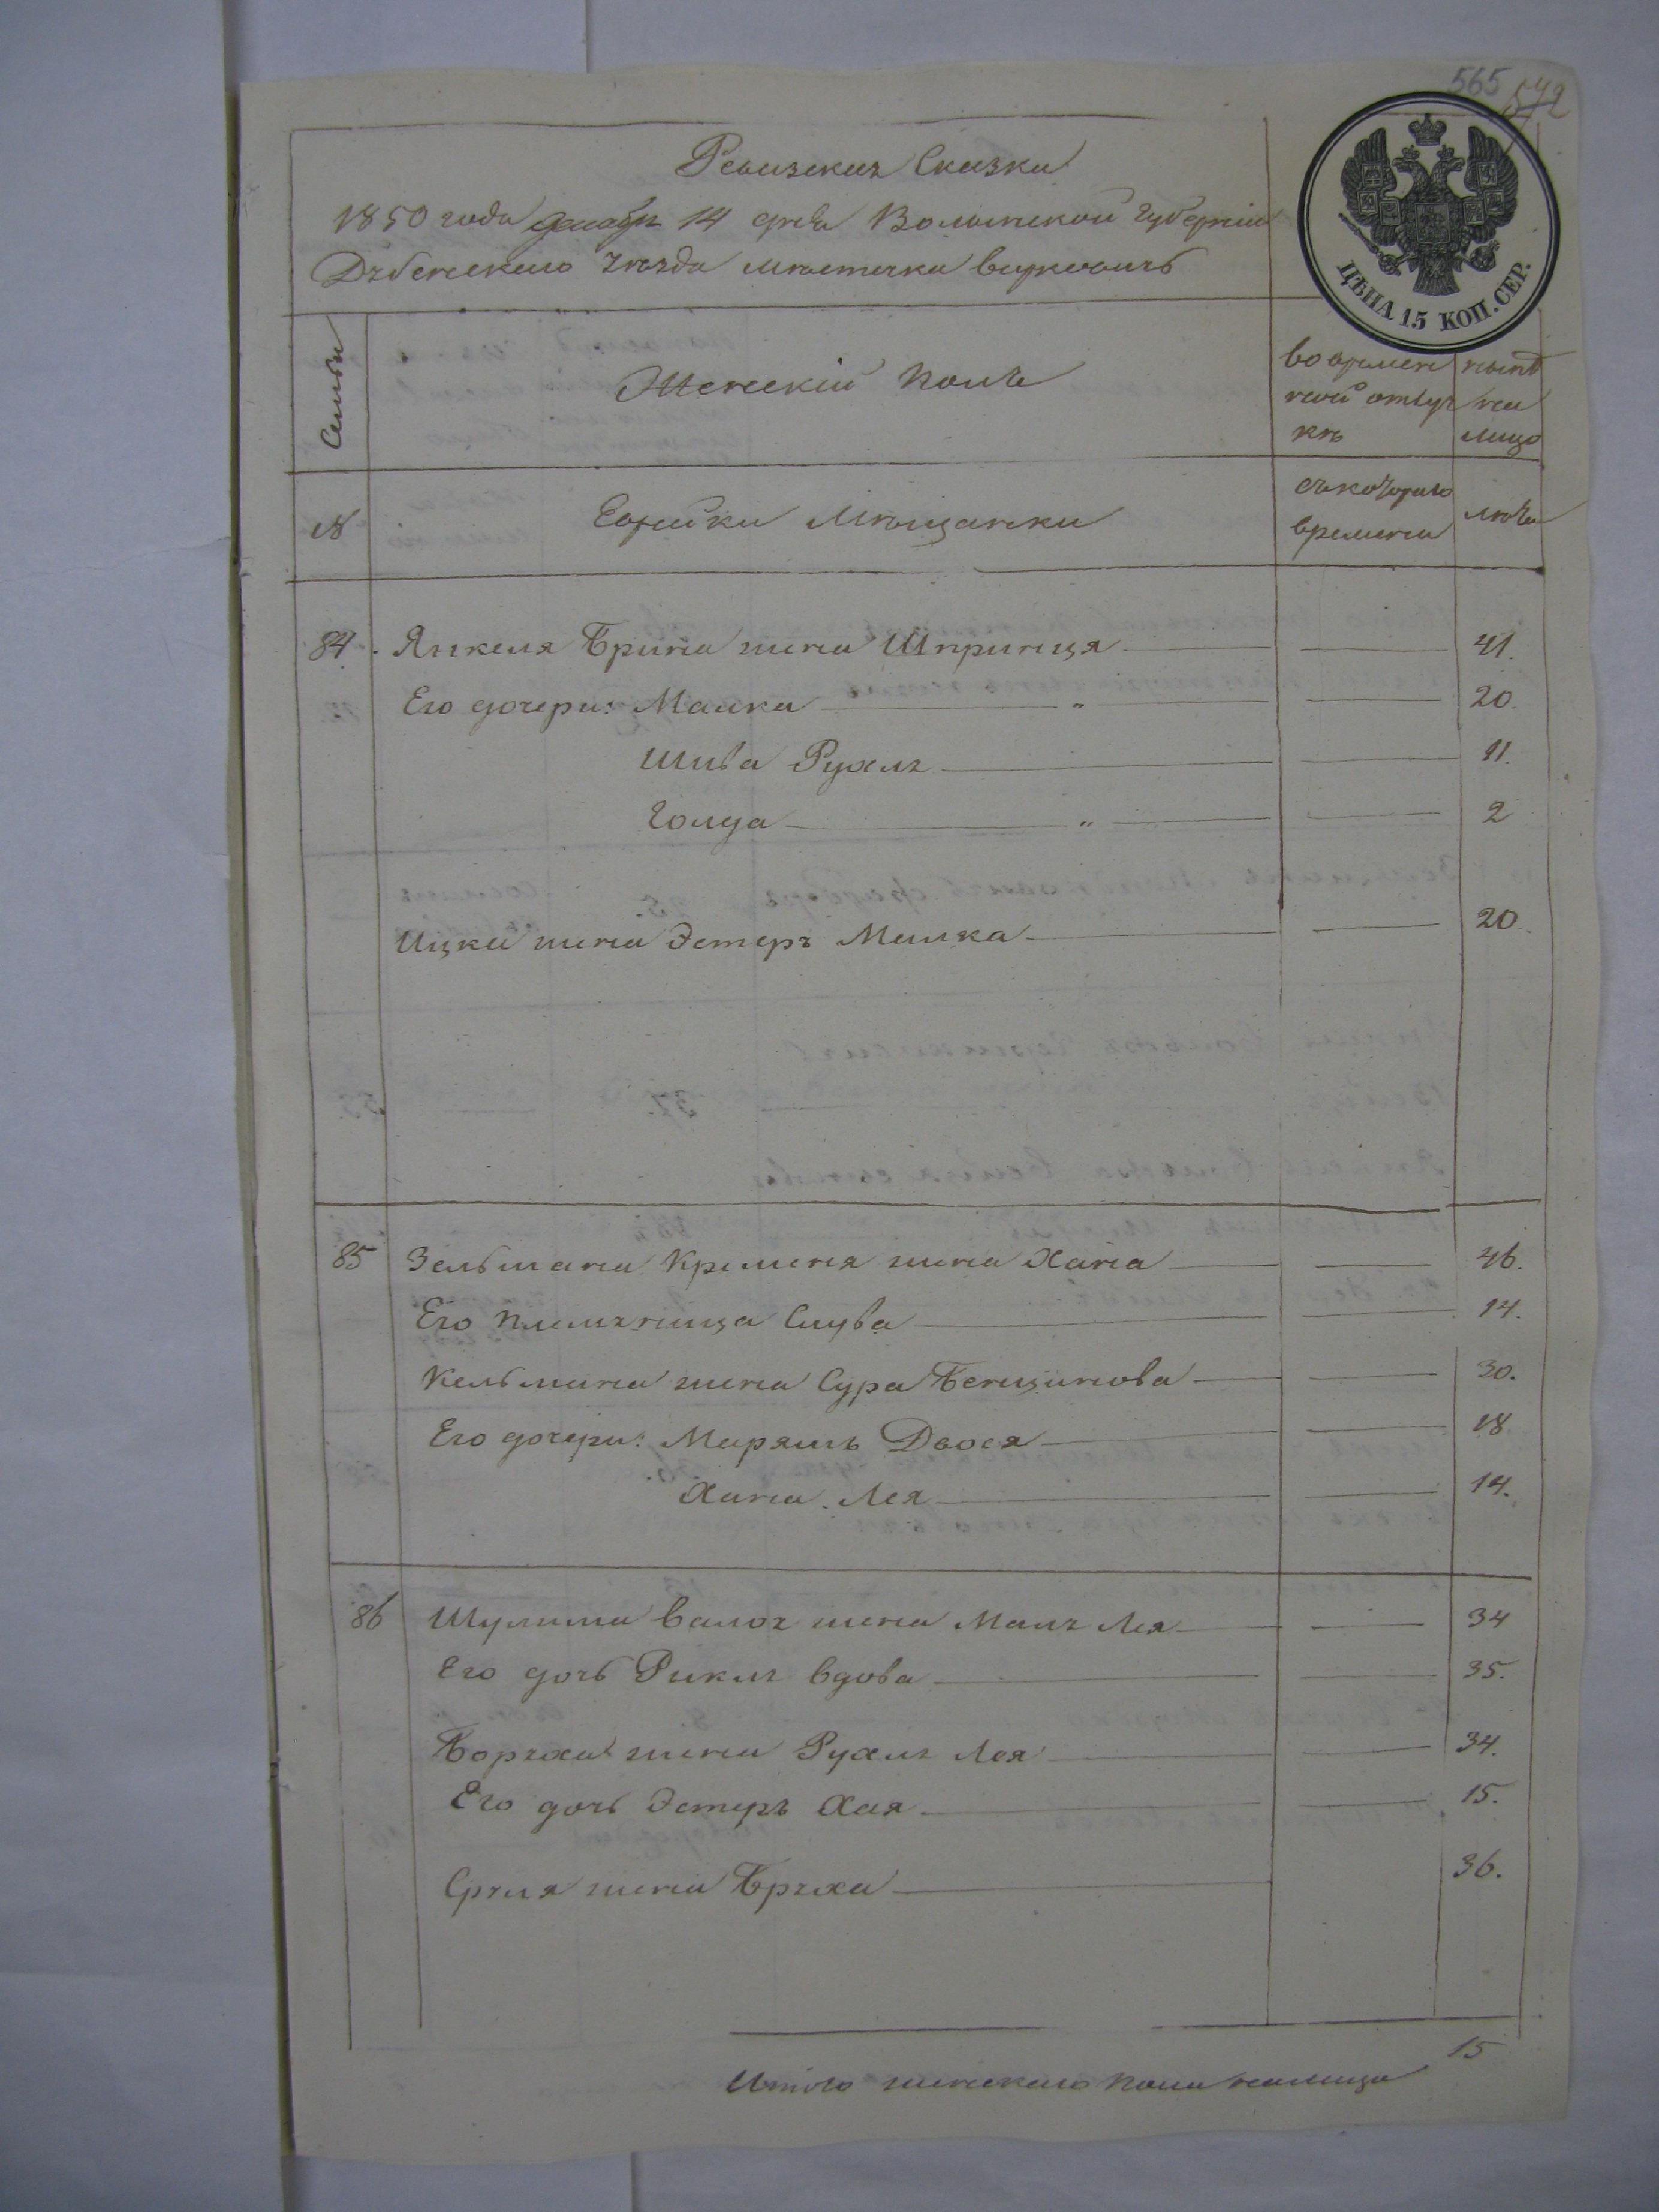 565
572
ЦѢНА 15 КОП. СЕР.
Ревизская Сказка
1850 года декабря 14 дня Волынской Губерніи
Дубенского Уезда местечка Варковичъ
Семьи
Женскій полъ
во времен
ной отлуч
кѣ
нынѣ
на
лицо
№
Еврейки Мѣщанки
съ котораго
времени
лѣта
84. Янкеля Брина жена Шпринця 41.
Его дочери: Малка " 20.
Шива Рухля 11.
Голда " 2
Ицка жена Эстеръ Малка 20.
85 Зельмана Кременя жена Хана 46.
Его племяница Слува 14.
Кельмана жена Сура Бенционова 30.
Его дочери: Марямъ Двося 18
Хана Лея 14.
86 Шулима Валох жена Маля Лея 34
Его дочь Рикля вдова 35.
Боруха жена Рухля Лея 34.
Его дочь Эстеръ Хая 15.
Сруля жена Бруха 36.
15
Итого женского пола налицо